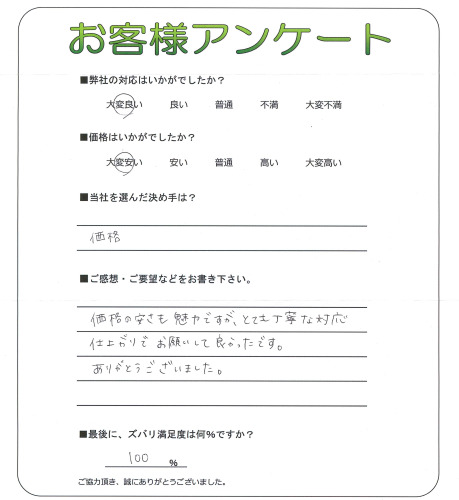 お客様アンケート
■弊社の対応はいかがでしたか？
大変良い 良い 普通 不満 大変不満
■価格はいかがでしたか？
大変安い 安い 普通 高い 大変高い
■当社を選んだ決め手は？
価格
■ご感想・ご要望などをお書き下さい。
価格の安さも魅力ですが、とても丁寧な対応
仕上がりでお願いして良かったです。
ありがとうございました。
■最後に、ズバリ満足度は何％ですか？
100 ％
ご協力頂き、誠にありがとうございました。